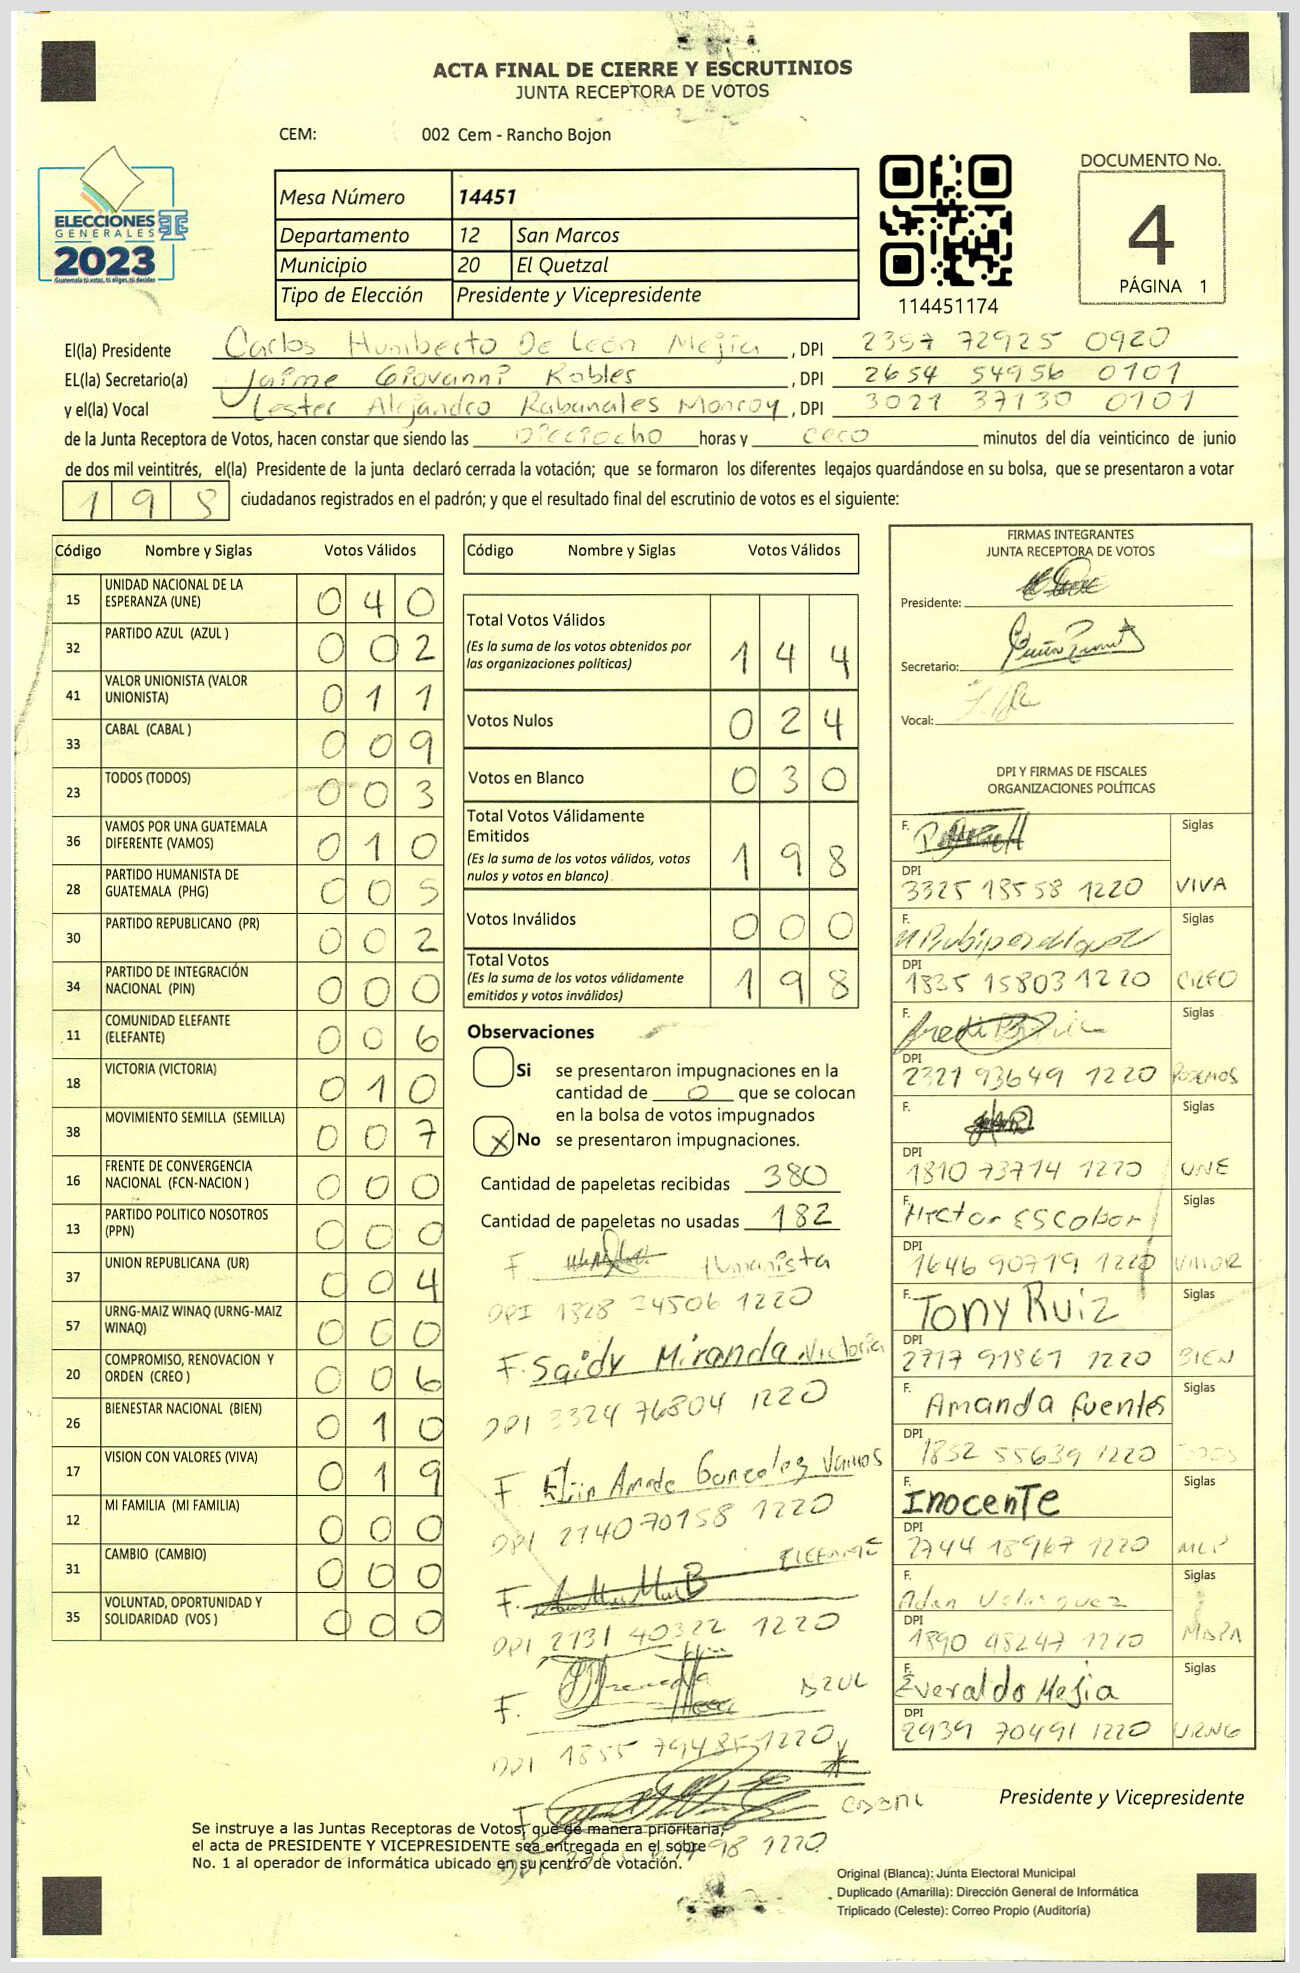 ACTA FINAL DE CIERRE Y ESCRUTINIOS
JUNTA RECEPTORA DE VOTOS
CEM: 002 Cem - Rancho Bojon
ELECCIONES
GENERALES
2023
Guatemala tú votas, tú eliges, tú decides
Mesa Número 14451
Departamento 12 San Marcos
Municipio 20 El Quetzal
Tipo de Elección Presidente y Vicepresidente
114451174
DOCUMENTO No.
4
PÁGINA 1
El(la) Presidente Carlos Humberto De León Mejía , DPI 2357 72925 0920
EL(la) Secretario(a) Jaime Giovanni Robles , DPI 2654 54956 0101
y el(la) Vocal Lester Alejandro Rabanales Monroy , DPI 3021 37130 0101
de la Junta Receptora de Votos, hacen constar que siendo las Dieciocho horas y cero minutos del día veinticinco de junio
de dos mil veintitrés, el(la) Presidente de la junta declaró cerrada la votación; que se formaron los diferentes legajos guardándose en su bolsa, que se presentaron a votar
198 ciudadanos registrados en el padrón; y que el resultado final del escrutinio de votos es el siguiente:
Código Nombre y Siglas Votos Válidos
15 UNIDAD NACIONAL DE LA ESPERANZA (UNE) 040
32 PARTIDO AZUL (AZUL ) 002
41 VALOR UNIONISTA (VALOR UNIONISTA) 011
33 CABAL (CABAL ) 009
23 TODOS (TODOS) 003
36 VAMOS POR UNA GUATEMALA DIFERENTE (VAMOS) 010
28 PARTIDO HUMANISTA DE GUATEMALA (PHG) 005
30 PARTIDO REPUBLICANO (PR) 002
34 PARTIDO DE INTEGRACIÓN NACIONAL (PIN) 000
11 COMUNIDAD ELEFANTE (ELEFANTE) 006
18 VICTORIA (VICTORIA) 010
38 MOVIMIENTO SEMILLA (SEMILLA) 007
16 FRENTE DE CONVERGENCIA NACIONAL (FCN-NACION ) 000
13 PARTIDO POLITICO NOSOTROS (PPN) 000
37 UNION REPUBLICANA (UR) 004
57 URNG-MAIZ WINAQ (URNG-MAIZ WINAQ) 000
20 COMPROMISO, RENOVACION Y ORDEN (CREO ) 006
26 BIENESTAR NACIONAL (BIEN) 010
17 VISION CON VALORES (VIVA) 019
12 MI FAMILIA (MI FAMILIA) 000
31 CAMBIO (CAMBIO) 000
35 VOLUNTAD, OPORTUNIDAD Y SOLIDARIDAD (VOS ) 000
Código Nombre y Siglas Votos Válidos
Total Votos Válidos 144
(Es la suma de los votos obtenidos por las organizaciones políticas)
Votos Nulos 024
Votos en Blanco 030
Total Votos Válidamente Emitidos 198
(Es la suma de los votos válidos, votos nulos y votos en blanco)
Votos Inválidos 000
Total Votos 198
(Es la suma de los votos válidamente emitidos y votos inválidos)
Observaciones
Si se presentaron impugnaciones en la
cantidad de 0 que se colocan
en la bolsa de votos impugnados
X No se presentaron impugnaciones.
Cantidad de papeletas recibidas 380
Cantidad de papeletas no usadas 182
F Humanista
DPI 1828 24506 1220
F. Saidy Miranda Victoria
DPI 3324 76804 1220
F Gonzalez Vamos
DPI 2140 70158 1220
F. ELEFANTE
DPI 2131 40322 1220
F. AZUL
DPI 1855 79485 1220
F CABAL
1220
FIRMAS INTEGRANTES
JUNTA RECEPTORA DE VOTOS
Presidente:
Secretario:
Vocal:
DPI Y FIRMAS DE FISCALES
ORGANIZACIONES POLÍTICAS
F. Siglas
DPI 3325 18558 1220 VIVA
F. Siglas
DPI 1835 15803 1220 CREO
F. Siglas
DPI 2321 93649 1220 PODEMOS
F. Siglas
DPI 1810 73714 1220 UNE
F. Hector Escobar Siglas
DPI 1646 90719 1220 VALOR
F. Tony Ruiz Siglas
DPI 2717 91861 1220 BIEN
F. Amanda Fuentes Siglas
DPI 1852 55639 1220 TODOS
F. Inocente Siglas
DPI 2744 18967 1220 MLP
F. Adan Velasquez Siglas
DPI 1890 48247 1220
F. Everaldo Mejia Siglas
DPI 2939 70491 1220 URNG
Presidente y Vicepresidente
Se instruye a las Juntas Receptoras de Votos, que de manera prioritaria,
el acta de PRESIDENTE Y VICEPRESIDENTE sea entregada en el sobre
No. 1 al operador de informática ubicado en su centro de votación.
Original (Blanca): Junta Electoral Municipal
Duplicado (Amarilla): Dirección General de Informática
Triplicado (Celeste): Correo Propio (Auditoría)